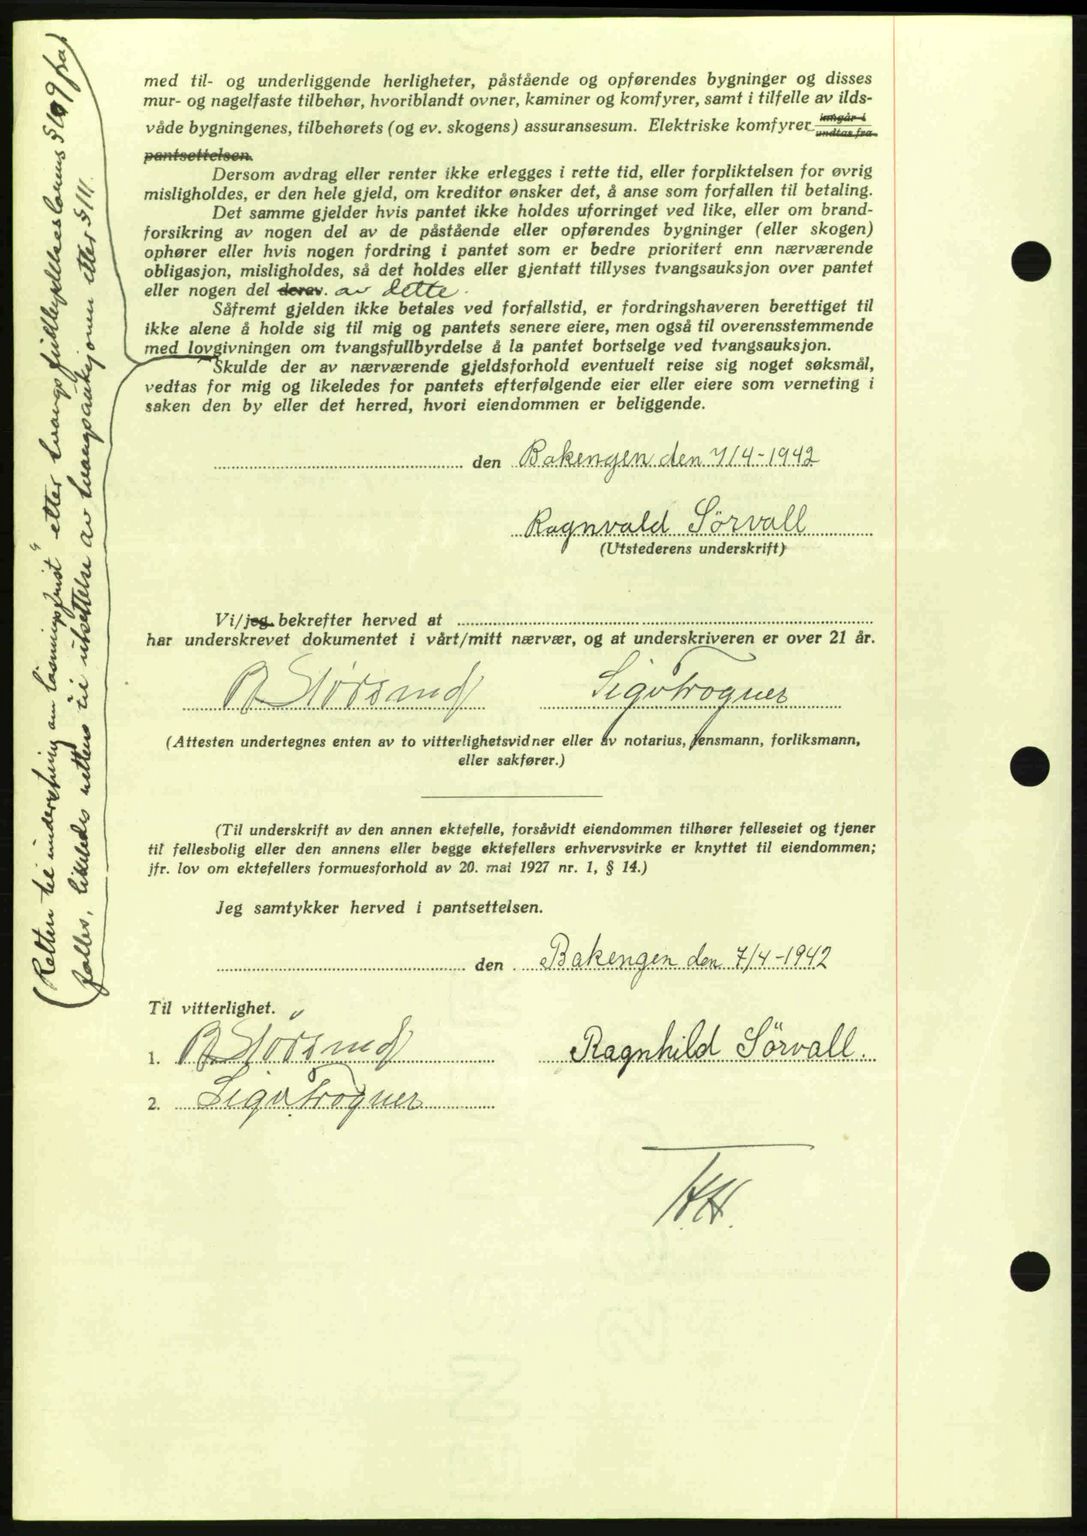 med til- og underliggende herligheter, påstående og opførendes bygninger og disses
mur- og nagelfaste tilbehør, hvoriblandt ovner, kaminer og komfyrer, samt i tilfelle av ilds-
våde bygningenes, tilbehørets (og ev. skogens) assuransesum. Elektriske komfyrer inngår i
undtas fra
pantsettelsen.
Dersom avdrag eller renter ikke erlegges i rette tid, eller forpliktelsen for øvrig
misligholdes, er den hele gjeld, om kreditor ønsker det, å anse som forfallen til betaling.
Det samme gjelder hvis pantet ikke holdes uforringet ved like, eller om brand-
forsikring av nogen del av de påstående eller opførendes bygninger (eller skogen)
ophører eller hvis nogen fordring i pantet som er bedre prioritert enn nærværende
obligasjon, misligholdes, så det holdes eller gjentatt tillyses tvangsauksjon over pantet
eller nogen del derav. av dette.
Såfremt gjelden ikke betales ved forfallstid, er fordringshaveren berettiget til
ikke alene å holde sig til mig og pantets senere eiere, men også til overensstemmende
med lovgivningen om tvangsfullbyrdelse å la pantet bortselge ved tvangsauksjon.
Skulde der av nærværende gjeldsforhold eventuelt reise sig noget søksmål,
vedtas for mig og likeledes for pantets efterfølgende eier eller eiere som verneting i
saken den by eller det herred, hvori eiendommen er beliggende.
(Retten til underretning om løsningsfrist" etter tvangsfullbyrdelseslovens § 109 fra-
falles, likeledes rettens til utsettelse av tvangsauksjonen etter § 111.
den Bakengen den 7/4-1942
Ragnvald Sørvall
(Utstederens underskrift)
Vi/jeg bekrefter herved at
har underskrevet dokumentet i vårt/mitt nærvær, og at underskriveren er over 21 år.
Sigv Trogner
(Attesten undertegnes enten av to vitterlighetsvidner eller av notarius, lensmann, forliksmann,
eller sakfører.)
(Til underskrift av den annen ektefelle, forsåvidt eiendommen tilhører felleseiet og tjener
til fellesbolig eller den annens eller begge ektefellers erhvervsvirke er knyttet til eiendommen;
jfr. lov om ektefellers formuesforhold av 20. mai 1927 nr. 1, § 14.)
Jeg samtykker herved i pantsettelsen.
den Bakengen den 7/4-1942
Til vitterlighet.
1. Ragnhild Sørvall.
2. Sigv Trogner
HH.